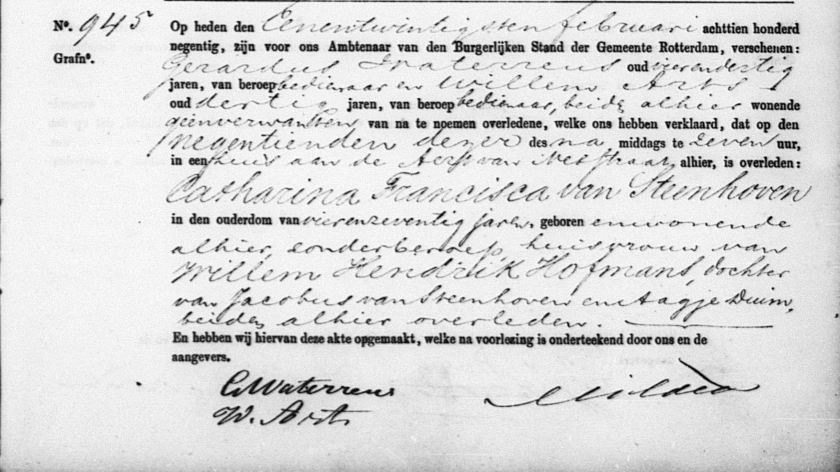 No. 945 Op heden den Eenentwintigsten februari achttien honderd
negentig, zijn voor ons Ambtenaar van den Burgerlijken Stand der Gemeente Rotterdam, verschenen:
Grafno.
Gerardus Waterreus oud vierendertig
jaren, van beroep bedienaar en Willem Arts
oud dertig jaren, van beroep bedienaar, beide alhier wonende
geenverwanten van na te noemen overledene, welke ons hebben verklaard, dat op den
negentienden dezer des na middags te zeven uur,
in een huis aan de Aert van Nesstraat alhier, is overleden:
Catharina Francisca van Steenhoven
in den ouderdom van vierenzeventig jaren, geboren en wonende
alhier, zonder beroep, huisvrouw van
Willem Hendrik Hofmans, dochter
van Jacobus van Steenhoven en Aagje Duim,
beiden alhier overleden.
En hebben wij hiervan deze akte opgemaakt, welke na voorlezing is onderteekend door ons en de
aangevers.
G. Waterreus
W. Arts